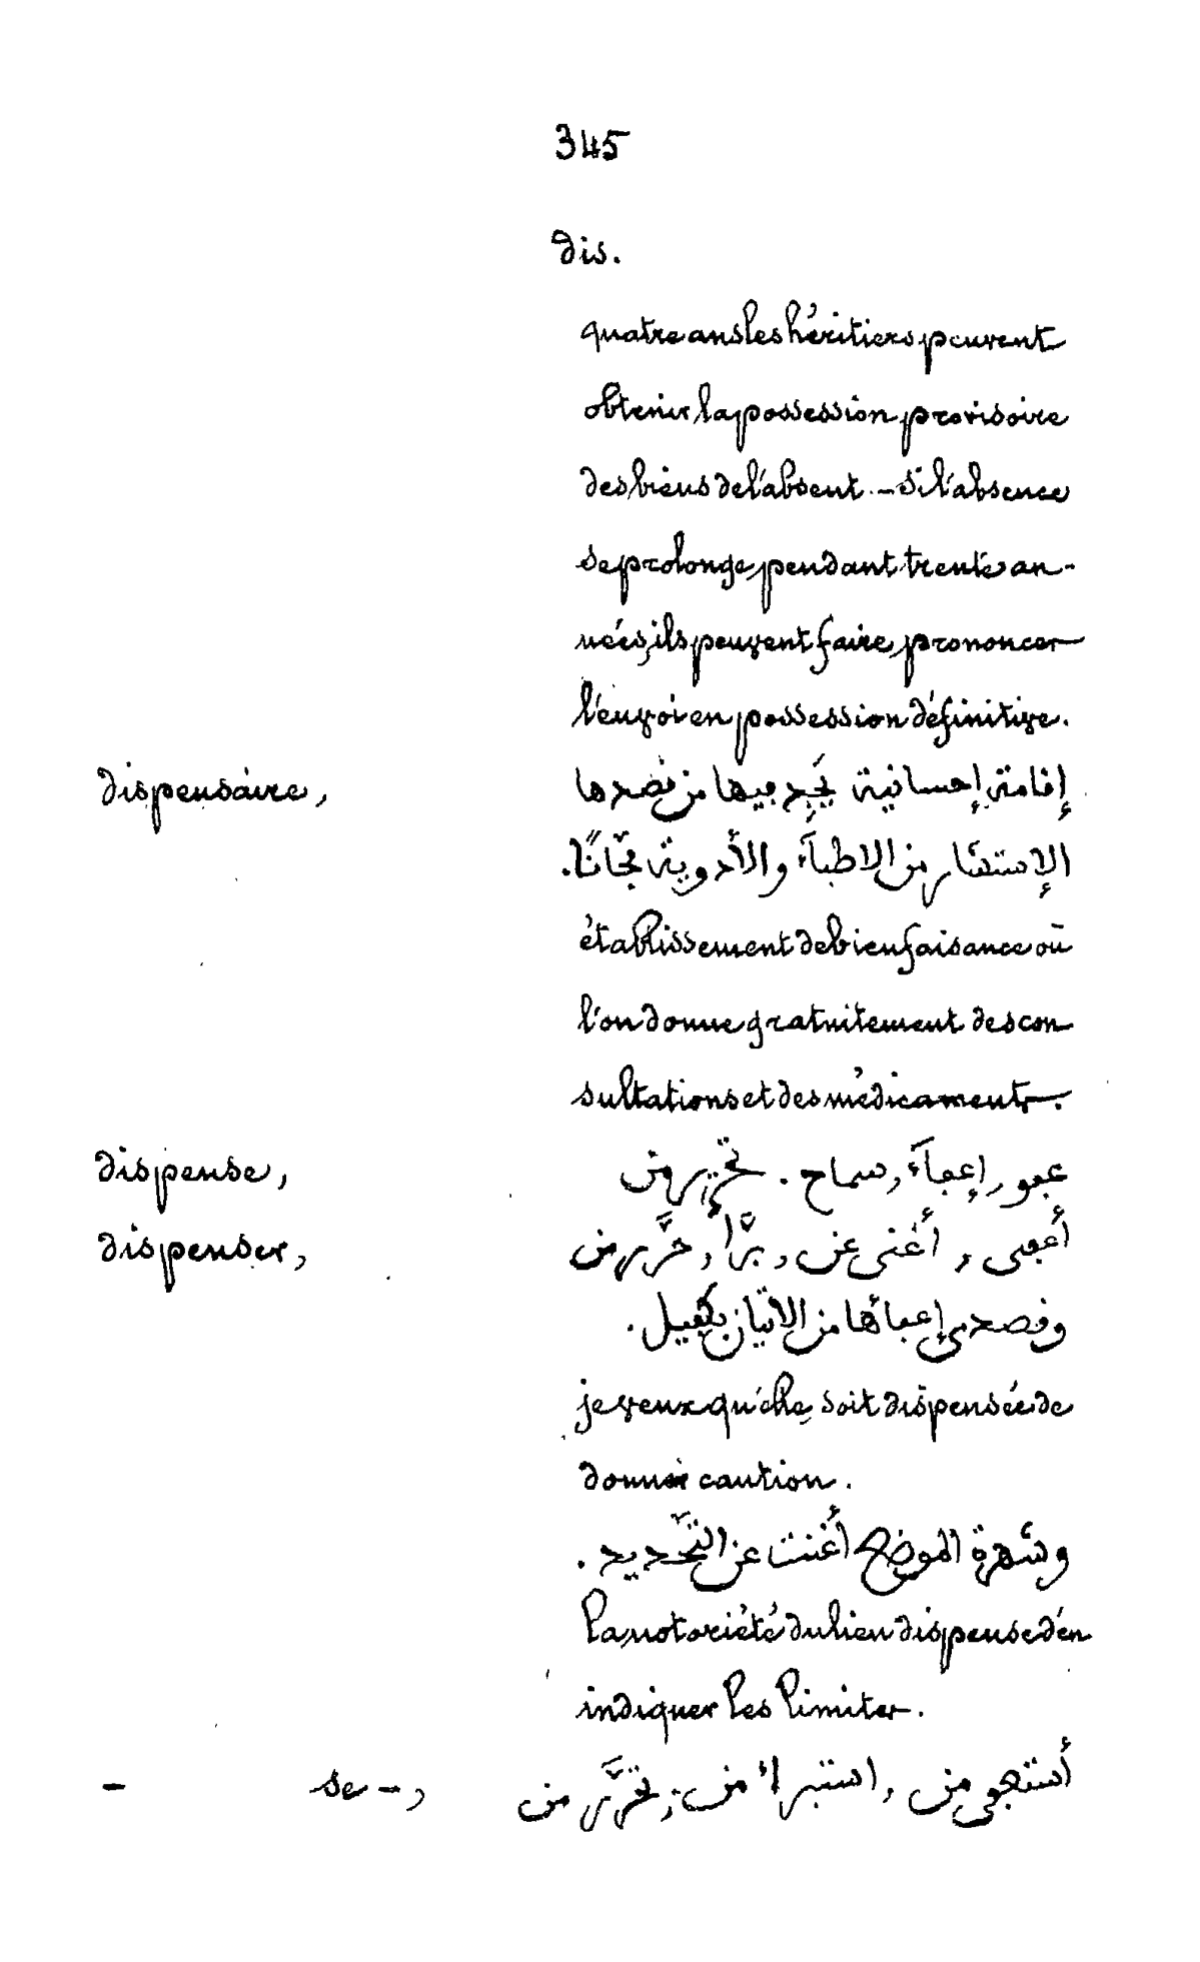 345
dis.
quatre ans les héritiers peuvent
obtenir la possession provisoire
des biens de l'absent. – Si l'absence
se prolonge pendant trente an-
nées, ils peuvent faire prononcer
l'envoi en possession définitive.
dispensaire, إقامة إحسانية يَجِد فيها من قصدها
الإستشار من الاطبآء والأدوية مجّانًا.
établissement de bienfaisance où
l'on donne gratuitement des con
sultations et des médicaments.
dispense, عفو, إعفآء, سماح. تحرير من
dispenser, أعفى, أغنى عن, برَّأ, حرَّر من
وقصدي إعفائها من الاتيان بكفيل.
je veux qu'elle soit dispensée de
donner caution.
وشهرة الموضع أغنت عن التّحديد.
la notoriété du lieu dispense d'en
indiquer les limites.
– se –, أستعفى من, استبرأ من, تحرَّر من